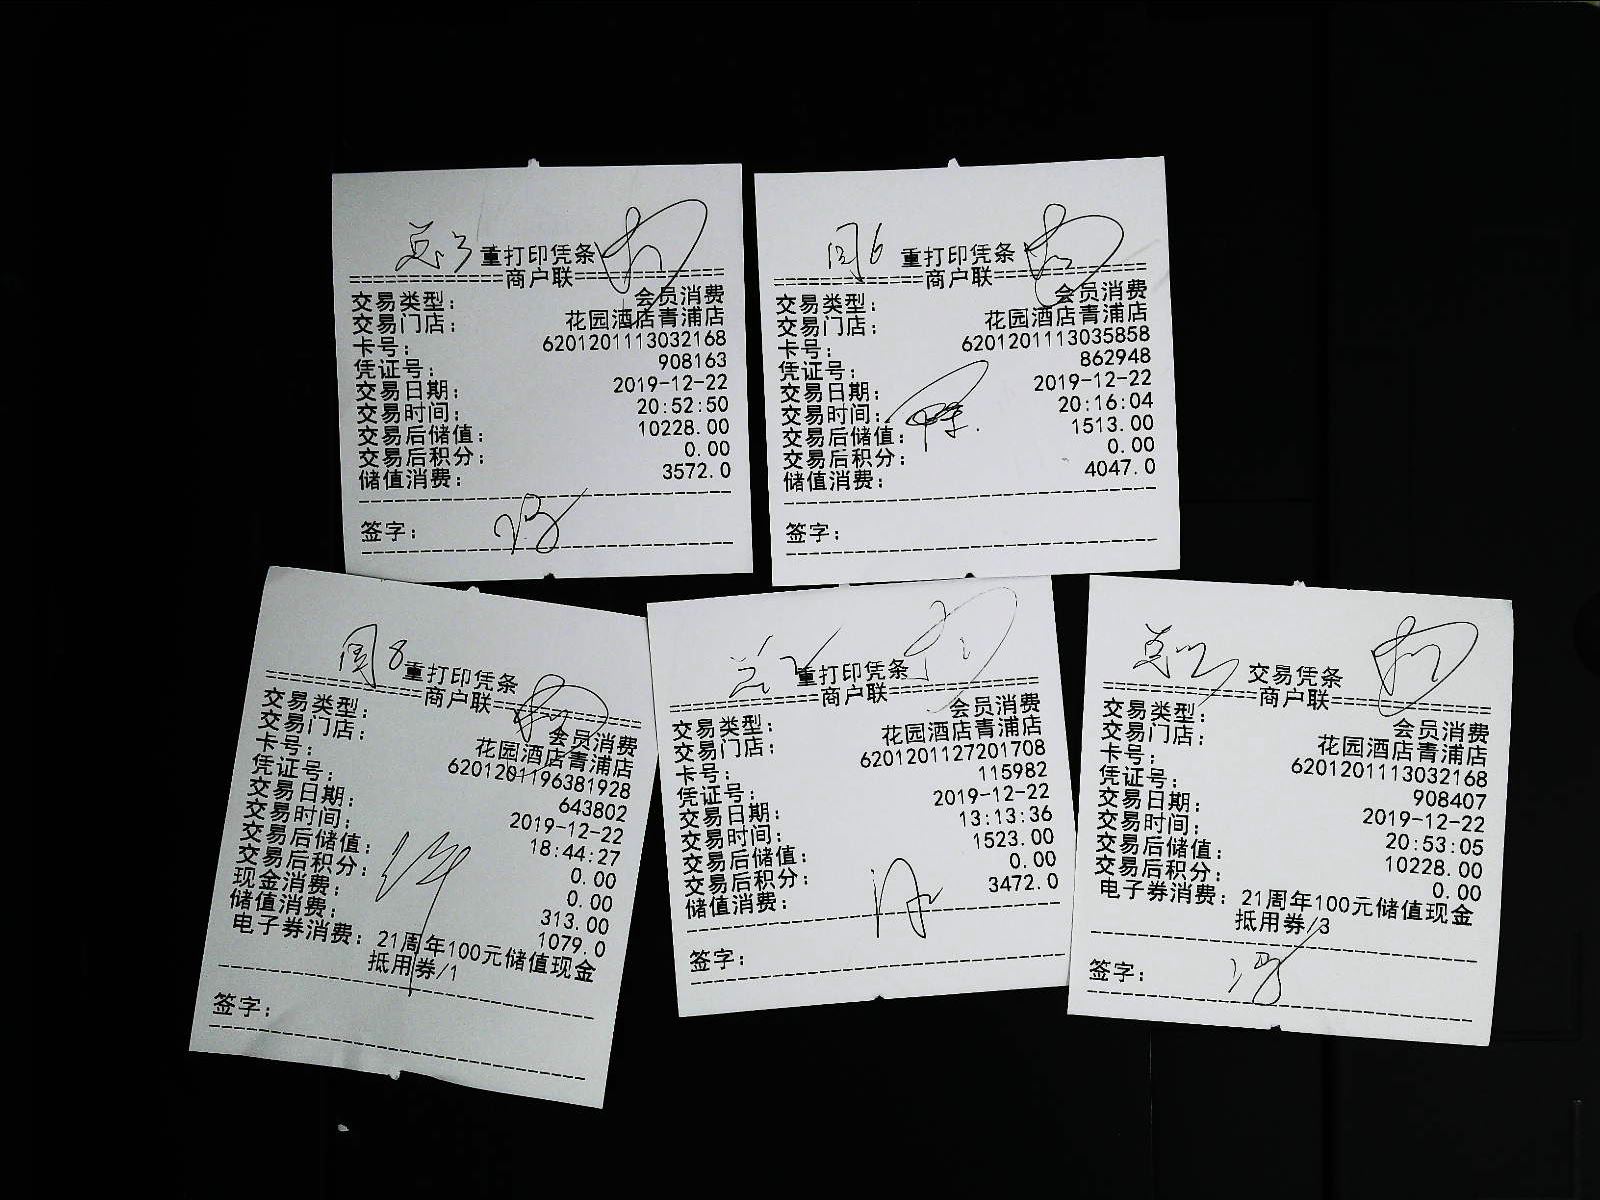 重打印凭条
商户联
交易类型: 会员消费
交易门店: 花园酒店青浦店
卡号: 6201201113032168
凭证号: 908163
交易日期: 2019-12-22
交易时间: 20:52:50
交易后储值: 10228.00
交易后积分: 0.00
储值消费: 3572.0
签字:
周6
重打印凭条
商户联
交易类型: 会员消费
交易门店: 花园酒店青浦店
卡号: 6201201113035858
凭证号: 862948
交易日期: 2019-12-22
交易时间: 20:16:04
交易后储值: 1513.00
交易后积分: 0.00
储值消费: 4047.0
签字:
周8
重打印凭条
商户联
交易类型: 会员消费
交易门店: 花园酒店青浦店
卡号: 6201201196381928
凭证号: 643802
交易日期: 2019-12-22
交易时间: 18:44:27
交易后储值: 0.00
交易后积分: 0.00
现金消费: 313.00
储值消费: 1079.0
电子券消费: 21周年100元储值现金
抵用券/1
签字:
重打印凭条
商户联
交易类型: 会员消费
交易门店: 花园酒店青浦店
卡号: 6201201127201708
凭证号: 115982
交易日期: 2019-12-22
交易时间: 13:13:36
交易后储值: 1523.00
交易后积分: 0.00
储值消费: 3472.0
签字:
交易凭条
商户联
交易类型: 会员消费
交易门店: 花园酒店青浦店
卡号: 6201201113032168
凭证号: 908407
交易日期: 2019-12-22
交易时间: 20:53:05
交易后储值: 10228.00
交易后积分: 0.00
电子券消费: 21周年100元储值现金
抵用券/3
签字: